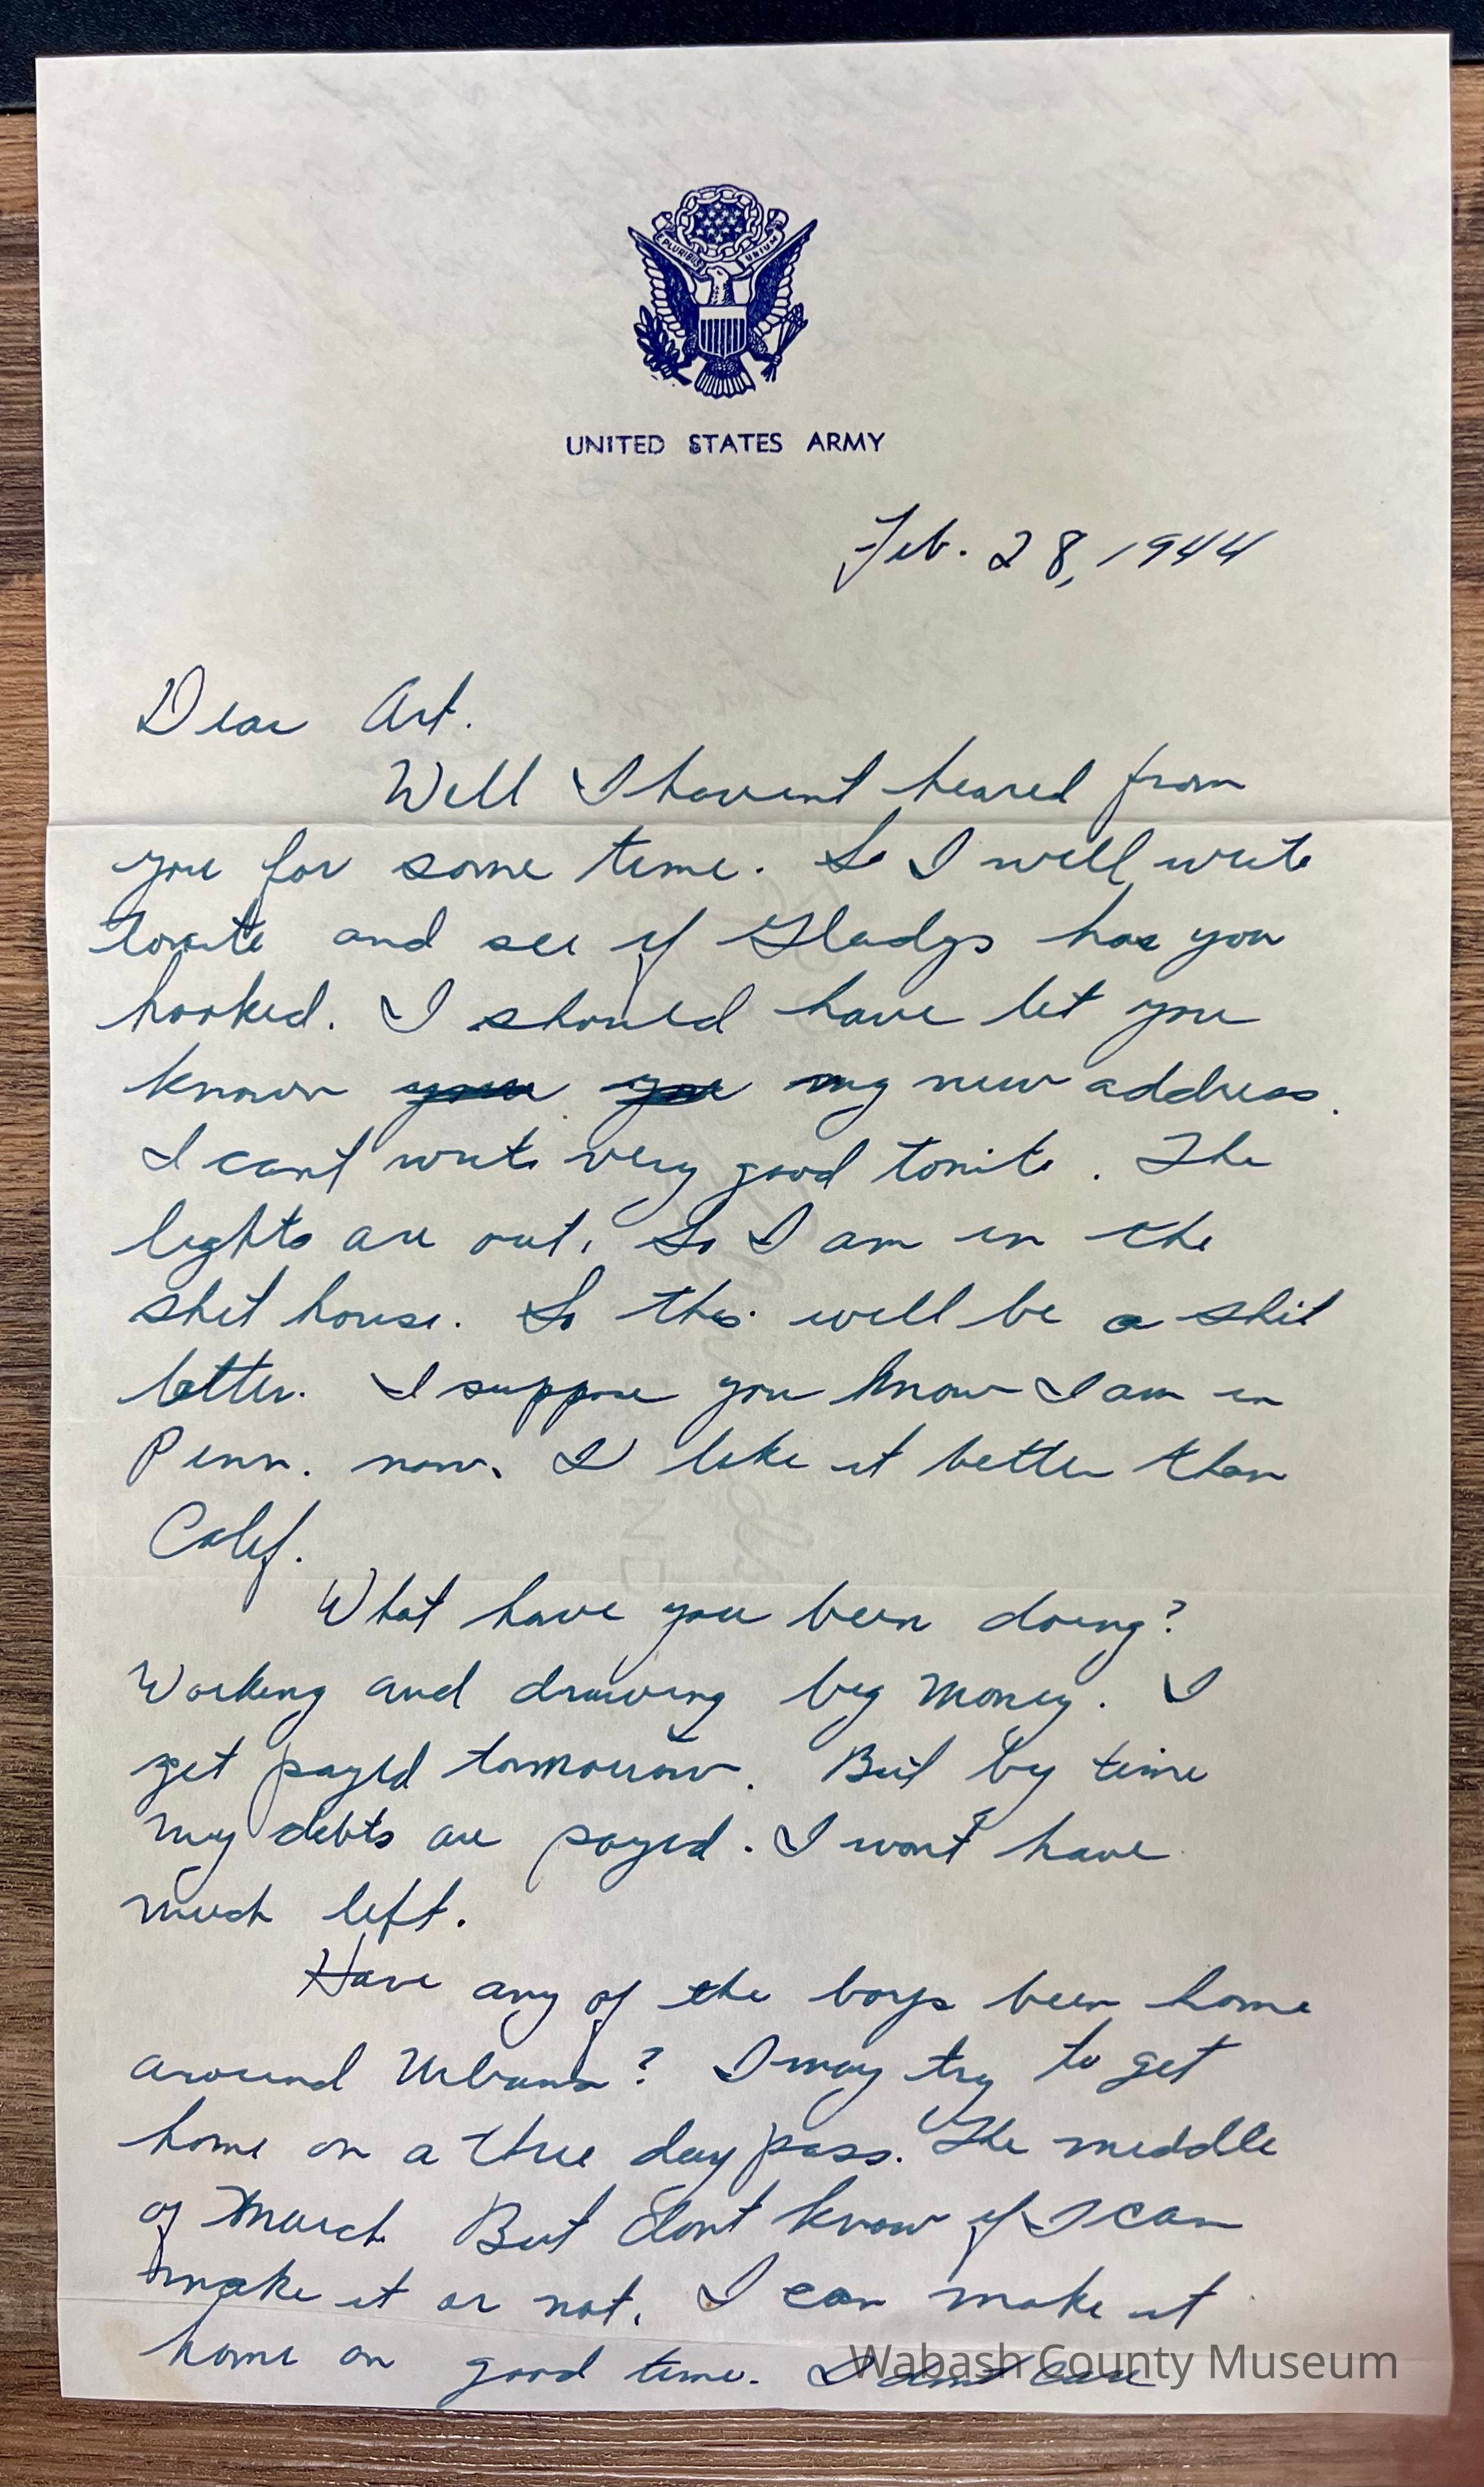 PLURIBUS UNUM
UNITED STATES ARMY
Feb. 28, 1944
Dear Art.
Well I havent heared from
you for some time. So I will write
tonite and see if Gladys has you
hooked. I should have let you
known my new address.
I cant write very good tonite. The
lights are out. So I am in the
shit house. So this will be a shit
letter. I suppose you know I am in
Penn. now. I like it better than
Calif.
What have you been doing?
Working and drawing big money. I
get payed tommorow. But by time
my debts are payed. I wont have
much left.
Have any of the boys been home
around Urbana? I may try to get
home on a three day pass. The middle
of March But dont know if I can
make it or not. I can make it
home on good time. I dont care
Wabash County Museum